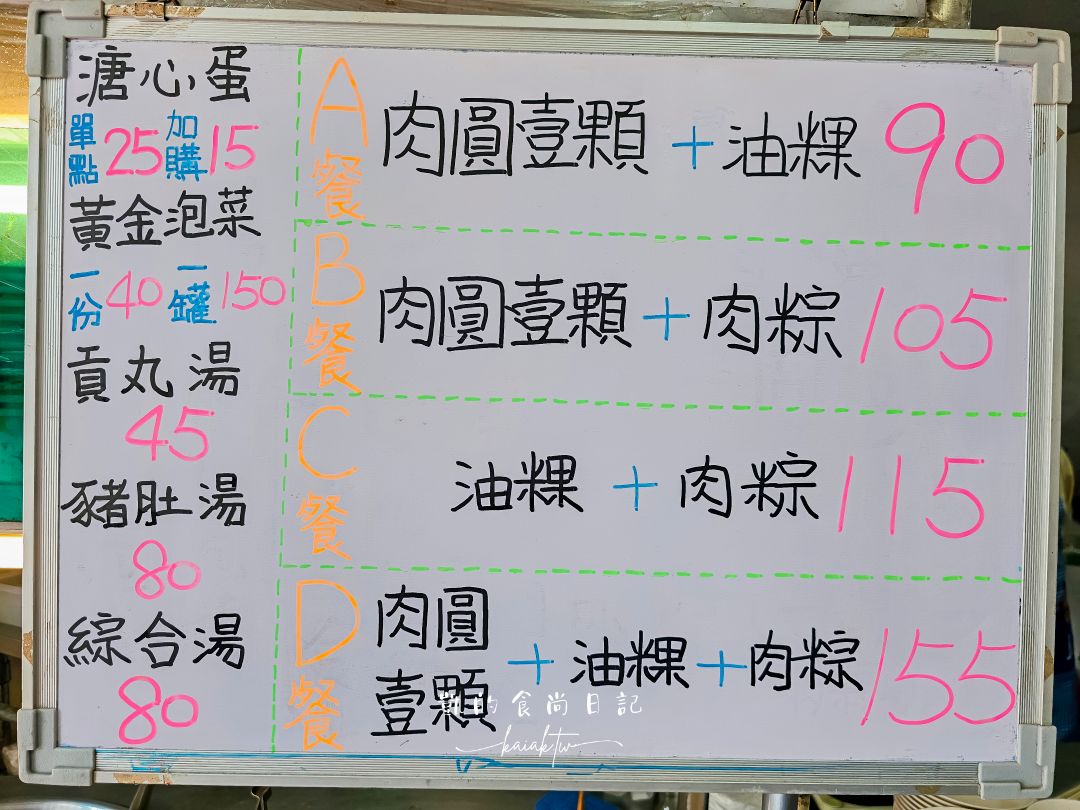 溏心蛋
單點25 加購15
黃金泡菜
一份40 一罐150
貢丸湯
45
豬肚湯
80
綜合湯
80
A餐 肉圓壹顆+油粿 90
B餐 肉圓壹顆+肉粽 105
C餐 油粿+肉粽 115
D餐 肉圓壹顆+油粿+肉粽 155
的食尚日記
kaiaktw